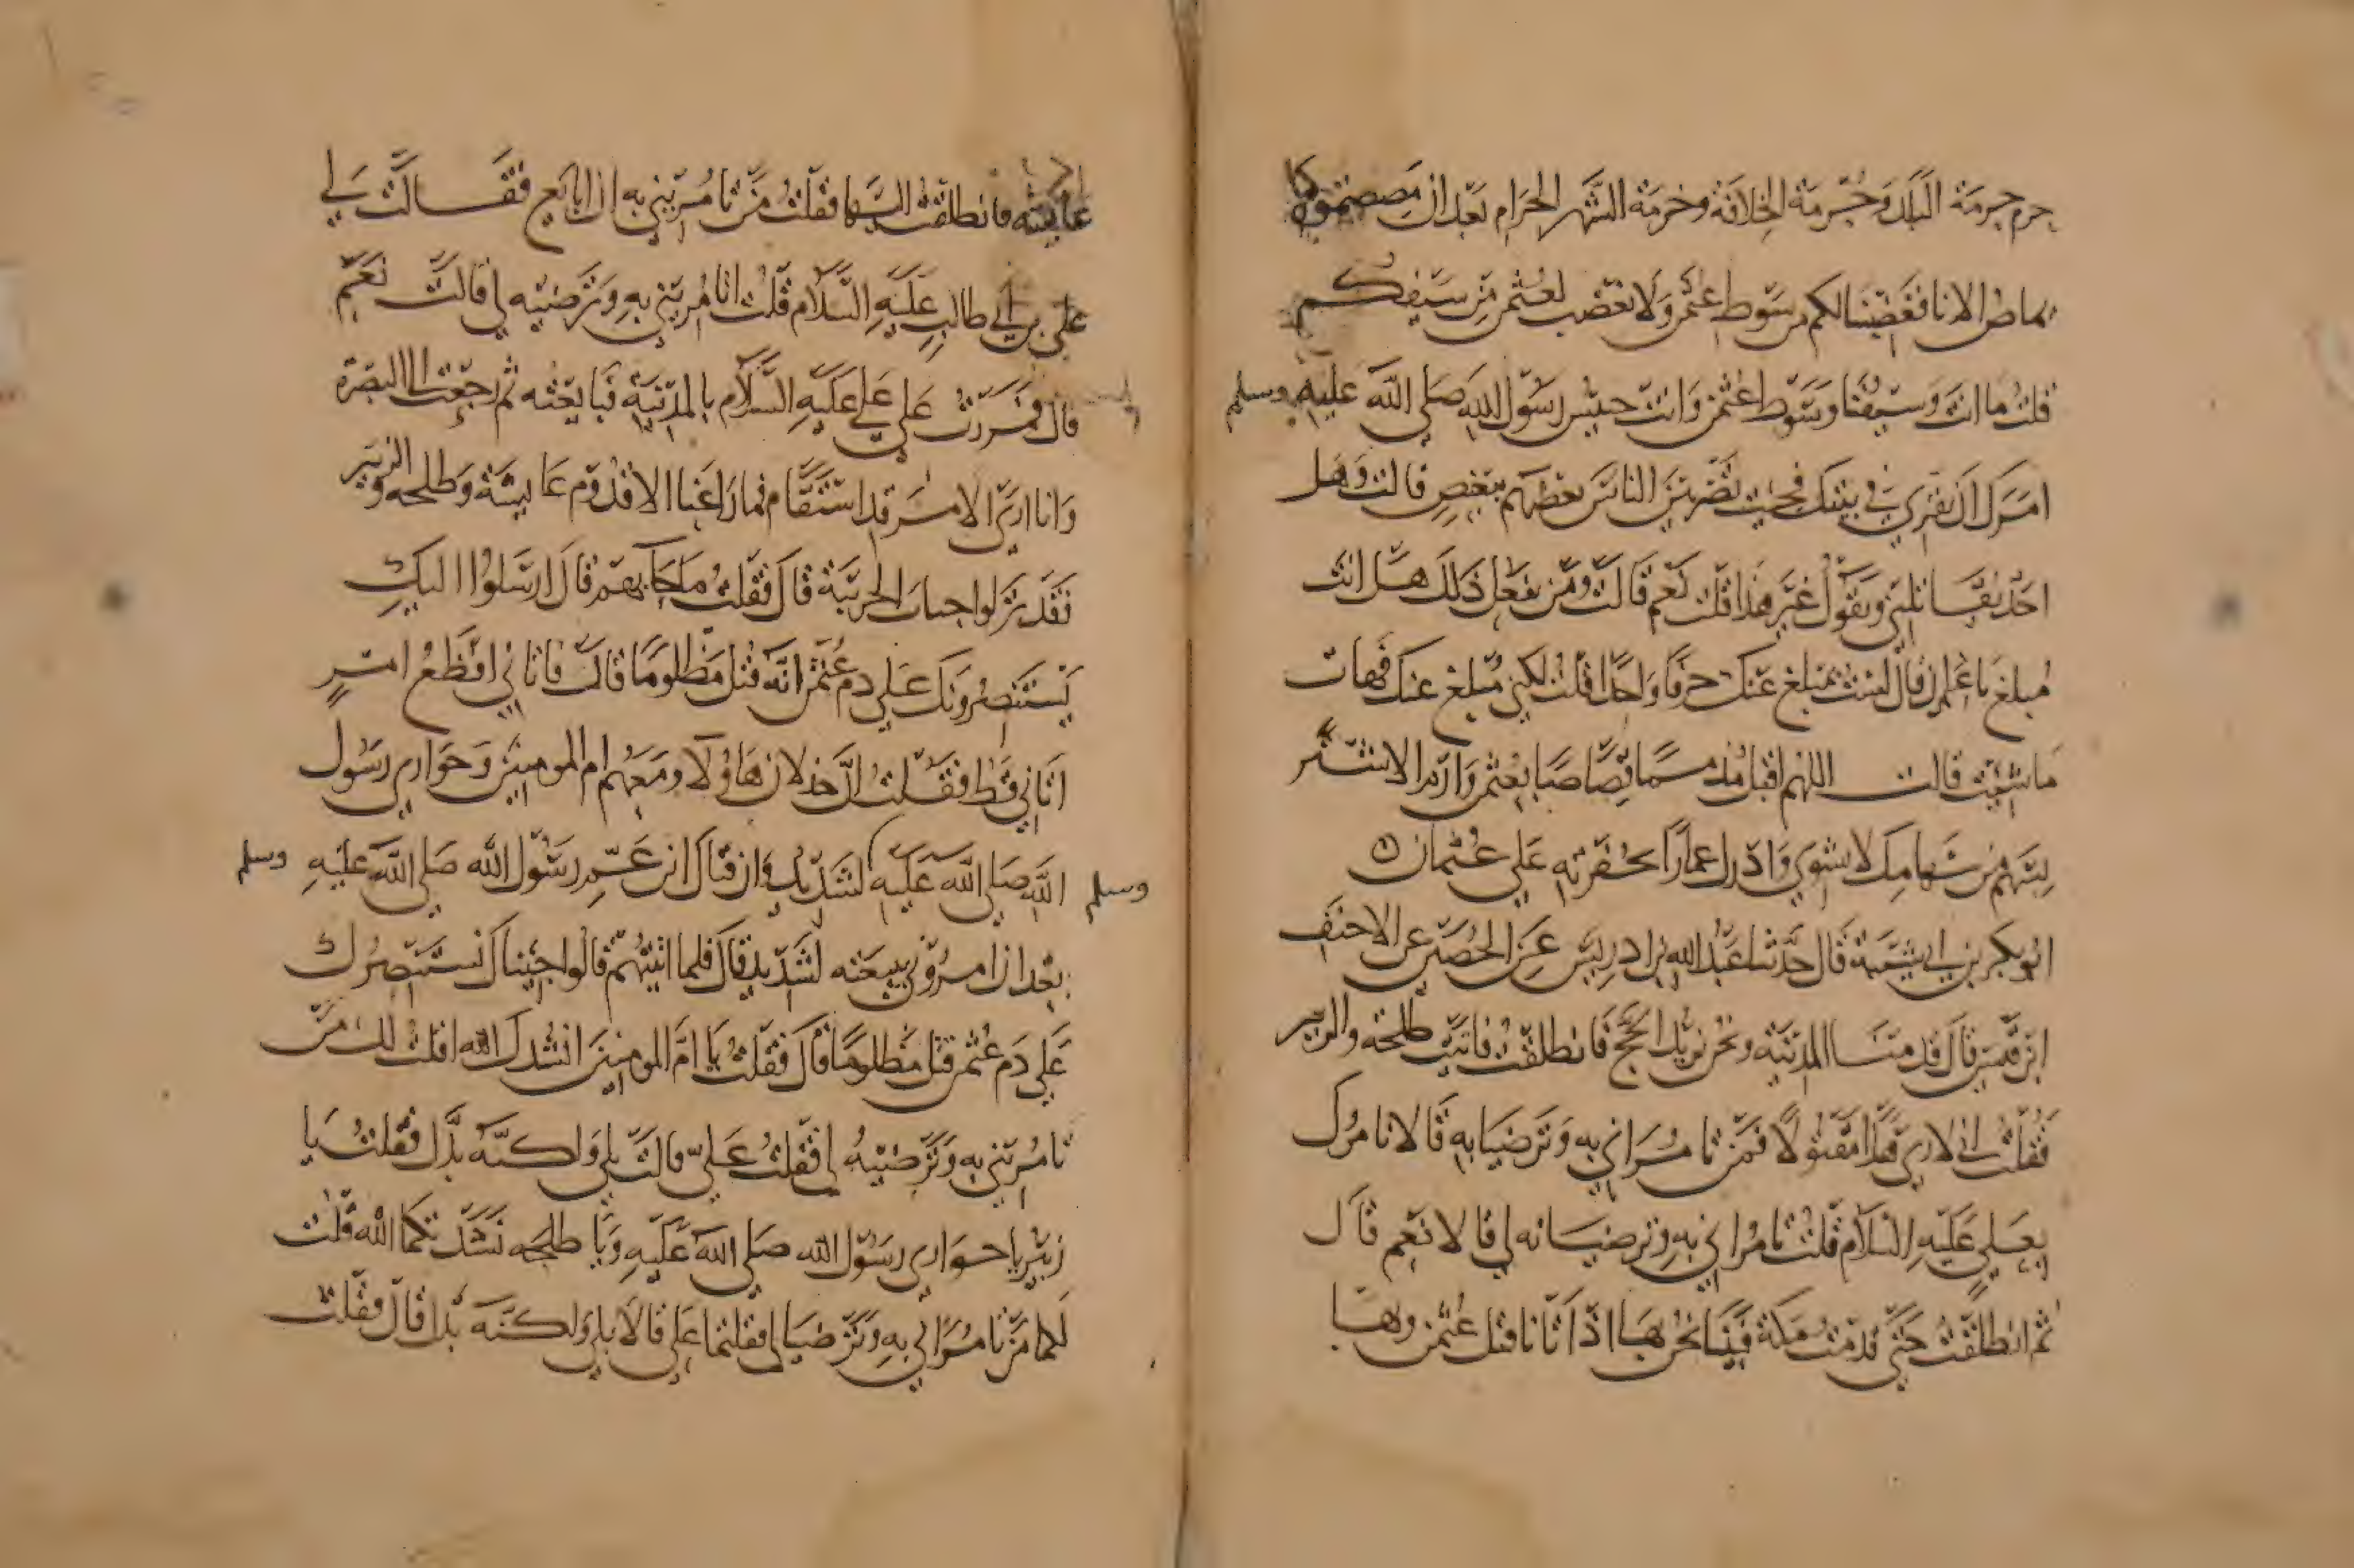 حرم حرمة البلد وحرمة الخلافة وحرمة الشهر الحرام بعد ان مصصتموه كما
يماص الاناء فغضبنا لكم من سوط عثمن ولا نغضب لعثمن من سيفكم
قلت ما انت وسيفنا وسوط عثمن وانت حبيس رسول الله صلى الله عليه وسلم
امرك ان تقري في بيتك فجيت تضربين الناس بعضهم ببعض قالت وهل
احد يقاتلني ويقول غير هذا قلت نعم قالت ومن يفعل ذلك هل انت
مبلغ يا عمران قال لست بمبلغ عنك حرفا واحدا قلت لكني مبلغ عنك فهات
ما شيت قالت اللهم اقتل مذمما قصاصا بعثمن وارم الاشتر
بسهم من سهامك لا يشوي وادرك عمارا بحفرته على عثمان
ابو بكر بن ابي شيبة قال حدثنا عبد الله بن ادريس عن الحصين عن الاحنف
ابن قيس قال قدمنا المدينة ونحن نريد الحج فانطلقت فاتيت طلحه والزبير
فقلت اني لا ارى هذا الا مقتولا فمن تامراني به وترضيا به قالا نامرك
بعلي عليه السلام قلت تامراني به وترضيانه لي قالا نعم قال
ثم انطلقت حتى قدمت مكة فبينا نحن بها اذ اتانا قتل عثمن وبها
عايشه فانطلقت اليها فقلت من تامريني به ان ابايع فقالت لي
علي بن ابي طالب عليه السلام قلت اتامريني به وترضينه لي قالت نعم
قال فمررت على علي عليه السلام بالمدينة فبايعته ثم رجعت الى البصرة
وانا ارى الامر قد استقام فما راعنا الا قدوم عايشة وطلحه والزبير
فقد نزلوا جناب الخريبة قال فقلت ما جا بهم قال ارسلوا اليك
يستنصرونك على دم عثمن انه قتل مظلوما قال فاتاني افظع امر
اتاني قط فقلت ان خذلان هاولا ومعهم ام المومنين وحواري رسول
الله صلى الله عليه وسلم لشديد وان قتال ابن عم رسول الله صلى الله عليه وسلم
بعد ان امروني ببيعته لشديد قال فلما اتيتهم قالوا جينا نستنصرك
على دم عثمن قتل مظلوما قال فقلت يا ام المومنين انشدك الله اقلت لك من
تامريني به وترضينه لي فقلت علي قالت بلى ولكنه بدل فقلت يا
زبير يا حواري رسول الله صلى الله عليه ويا طلحه نشدتكما الله قلت
لكما من تامراني به وترضيا لي فقلتما علي قالا بلى ولكنه بدل قال فقلت